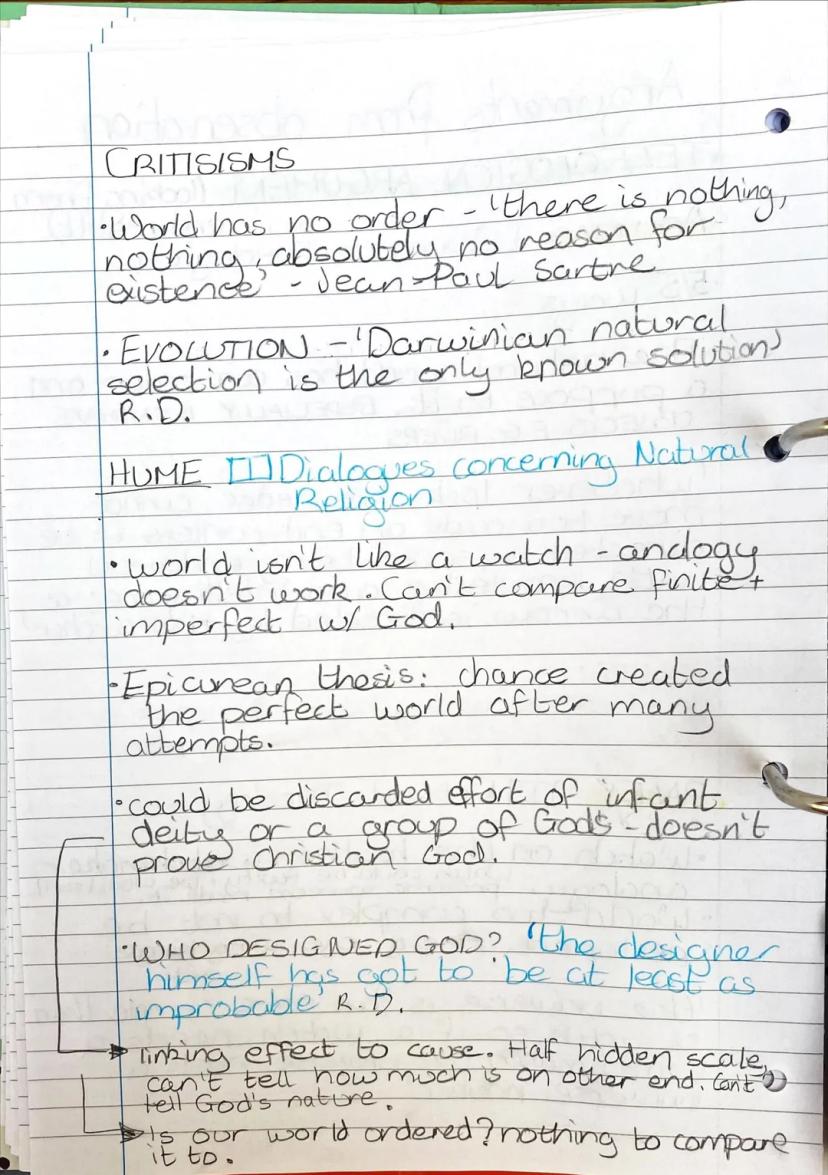 CRITISISMS
·World has no order - 'there is nothing,
nothing, absolutely no reason for
existence' - Jean-Paul Sartre
· EVOLUTION - 'Darwinian natural
selection is the only known solution'
R.D.
HUME Dialogues concerning Natural
Religion
· world isn't like a watch - analogy
doesn't work. Can't compare finite +
imperfect w/ God.
·Epicurean thesis: chance created
the perfect world after many
attempts.
·could be discarded effort of infant
deity or a group of Gods - doesn't
prove Christian God.
·WHO DESIGNED GOD? 'the designer
himself has got to be at least as
improbable R.D.
linking effect to cause. Half hidden scale,
can't tell how much is on other end. Can't
tell God's nature.
Is our world ordered? nothing to compare
it to.